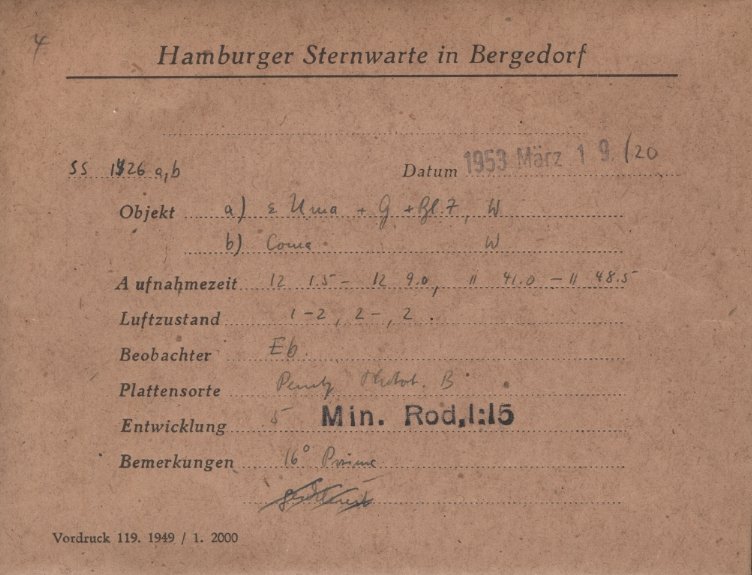 4
Hamburger Sternwarte in Bergedorf
SS 1926 a,b Datum 1953 März 19. /20
Objekt a) ε Uma + G + Bl. 7, W
b) Coma W
Aufnahmezeit 12 1.5 – 12 9.0, 11 41.0 – 11 48.5
Luftzustand 1-2, 2-, 2.
Beobachter Eb.
Plattensorte B
Entwicklung 5 Min. Rod,1:15
Bemerkungen 16° Prisma
Vordruck 119. 1949 / 1. 2000